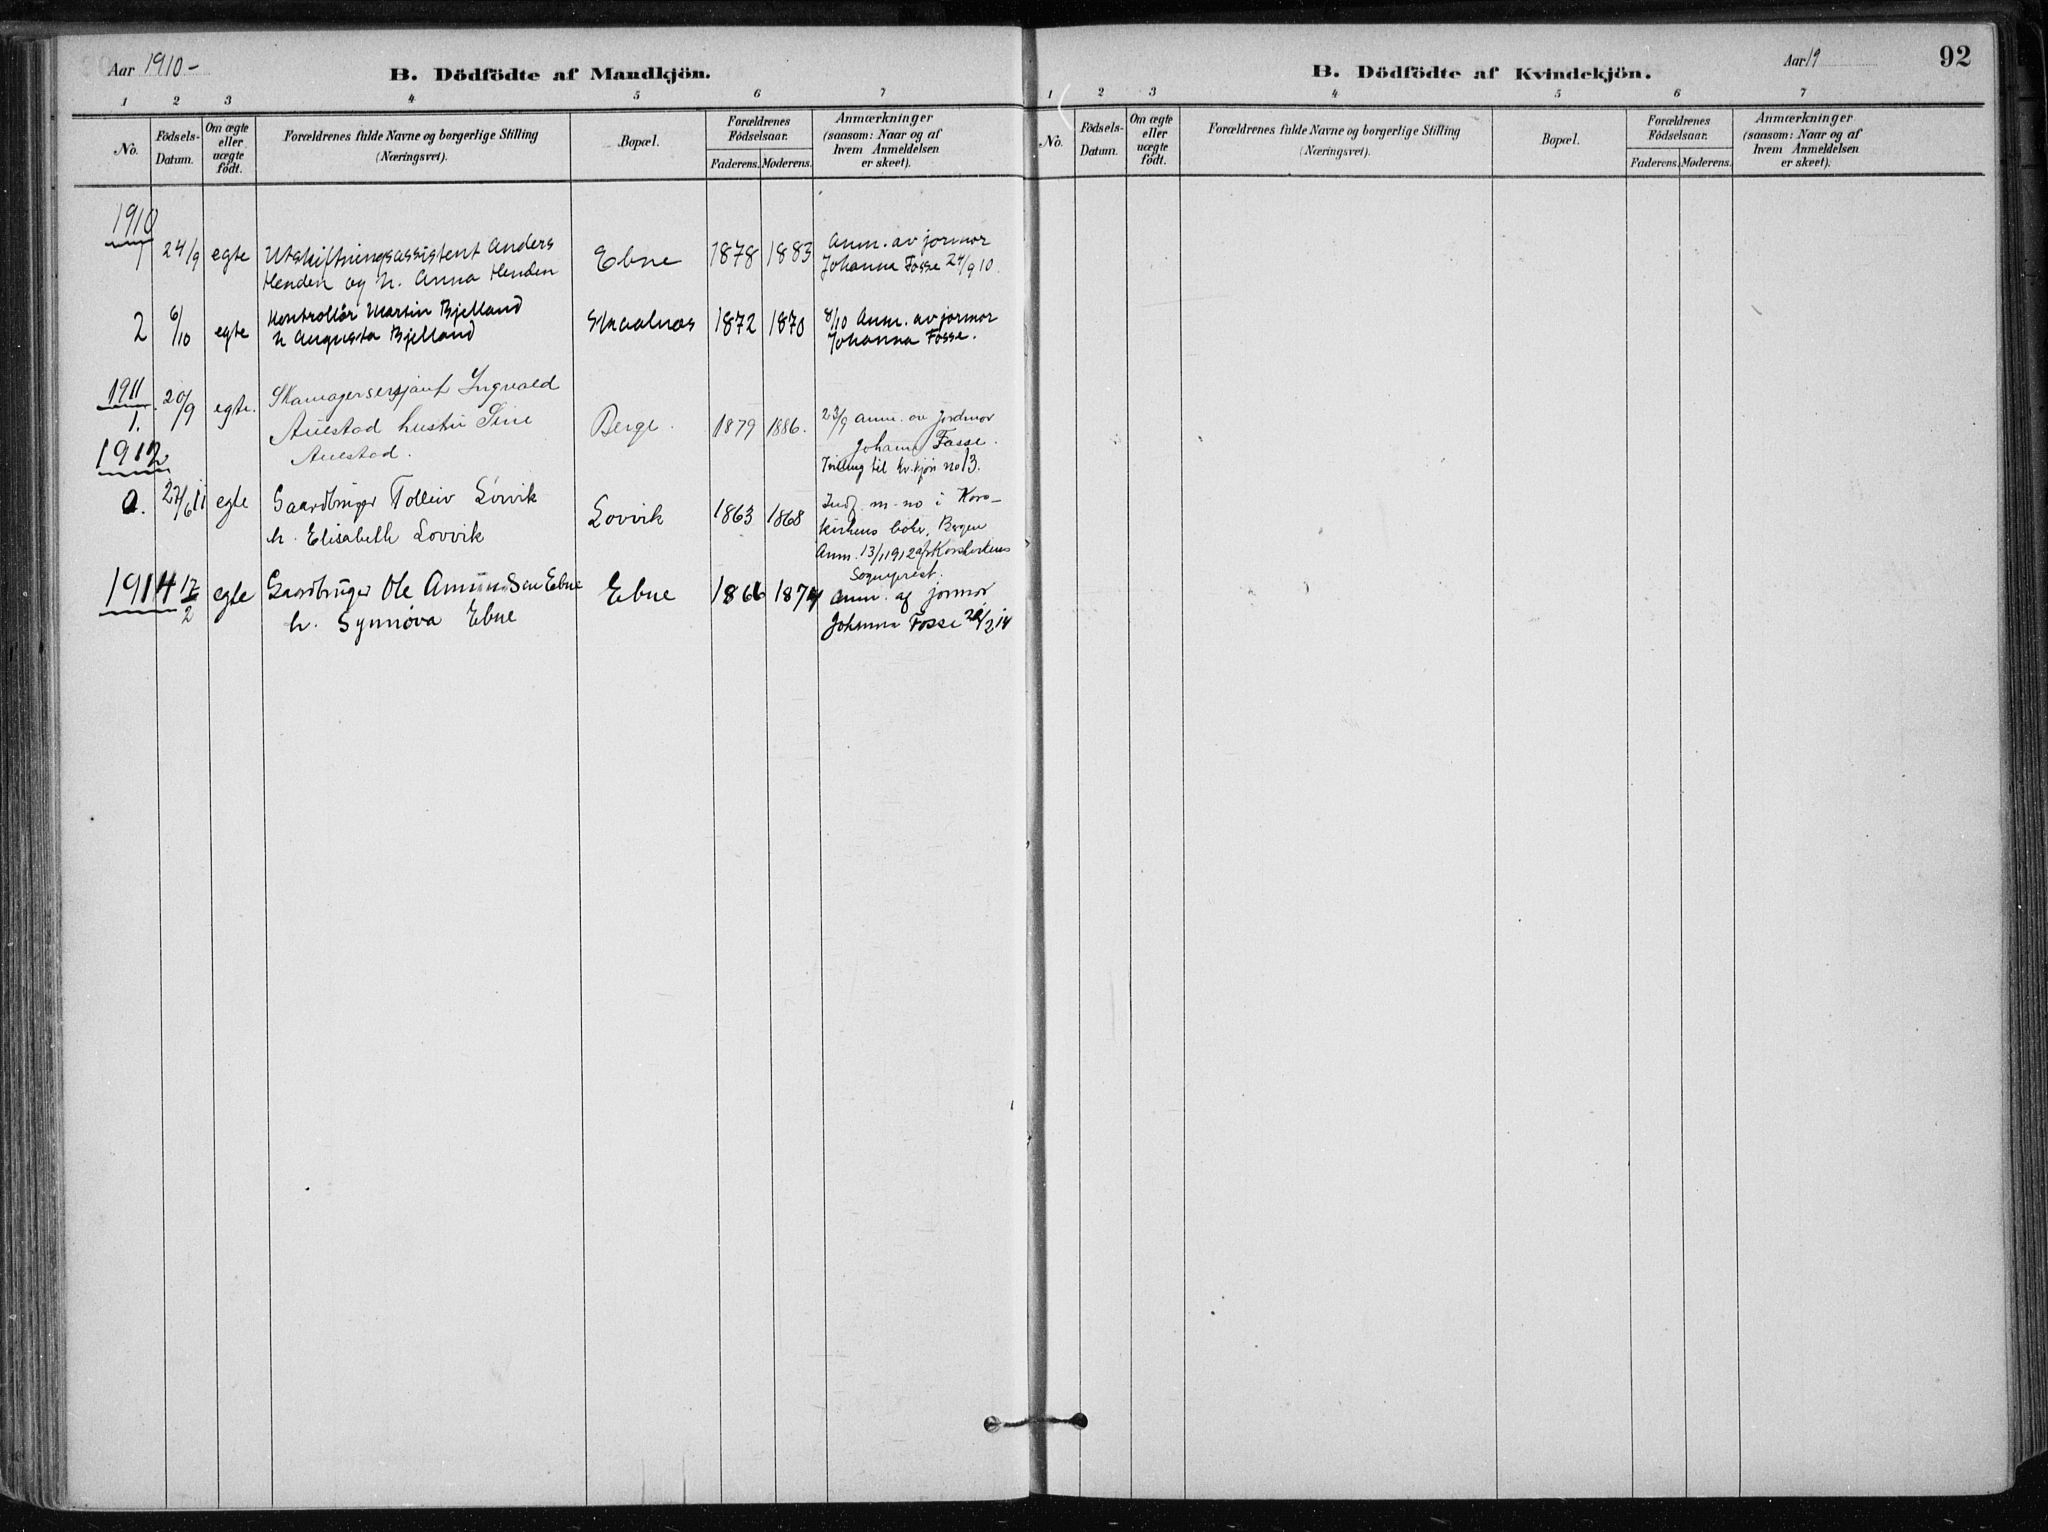 Aar 1910-
B. Dödfödte af Mandkjön.
1 2 3 4 5 6 7
No.
Födsels-
Datum.
Om ægte
eller
uægte
födt.
Forældrenes fulde Navne og borgerlige Stilling
(Næringsvei).
Bopæl.
Forældrenes
Födselsaar.
Faderens. Moderens.
Anmærkninger
(saasom: Naar og af
hvem Anmeldelsen
er skeet).
1910
1 24/9 egte Utskiftningsassistent Anders Ebne 1878 1883 Anm. av jormor
Henden og h. Anna Henden Johanna Fosse 24/9 10.
2 6/10 egte Kontrollör Martin Bjelland Skaalnæs 1872 1870 8/10 Anm. av jormor
h Augusta Bjelland Johanna Fosse.
1911
1. 20/9 egte. Ingvald
Auestad hustru Sine Berge. 1879 1886. 23/9 anm. av Jordmor
Auestad. Johanna Fosse.
Tvilling til kv.kjön no 13.
1912
a. 27/6 11 egte Gaardbruger Tolleiv Lovvik Lovvik 1863 1868 Indf. m. no i Kors-
h. Elisabeth Lovvik kirkens bøker, Bergen
Anm. 13/1 1912 af Korskirkens
Sogneprest.
1914 17/2 egte Gaardbruger Ole Amundsen Ebne Ebne 1866 1874 Anm. af jormor
h. Synnøva Ebne Johanna Fosse 2 14
Aar 19
92
B. Dödfödte af Kvindekjön.
1 2 3 4 5 6 7
No.
Födsels-
Datum.
Om ægte
eller
uægte
födt.
Forældrenes fulde Navne og borgerlige Stilling
(Næringsvei).
Bopæl.
Forældrenes
Födselsaar.
Faderens. Moderens.
Anmærkninger
(saasom: Naar og af
hvem Anmeldelsen
er skeet).